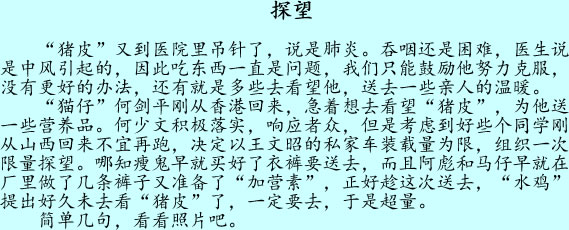 探望
“猪皮”又到医院里吊针了，说是肺炎。吞咽还是困难，医生说
是中风引起的，因此吃东西一直是问题，我们只能鼓励他努力克服，
没有更好的办法，还有就是多些去看望他，送去一些亲人的温暖。
“猫仔”何剑平刚从香港回来，急着想去看望“猪皮”，为他送
一些营养品。何少文积极落实，响应者众，但是考虑到好些个同学刚
从山西回来不宜再跑，决定以王文昭的私家车装载量为限，组织一次
限量探望。哪知瘦鬼早就买好了衣裤要送去，而且阿彪和马仔早就在
厂里做了几条裤子又准备了“加营素”，正好趁这次送去，“水鸡”
提出好久未去看“猪皮”了，一定要去，于是超量。
简单几句，看看照片吧。